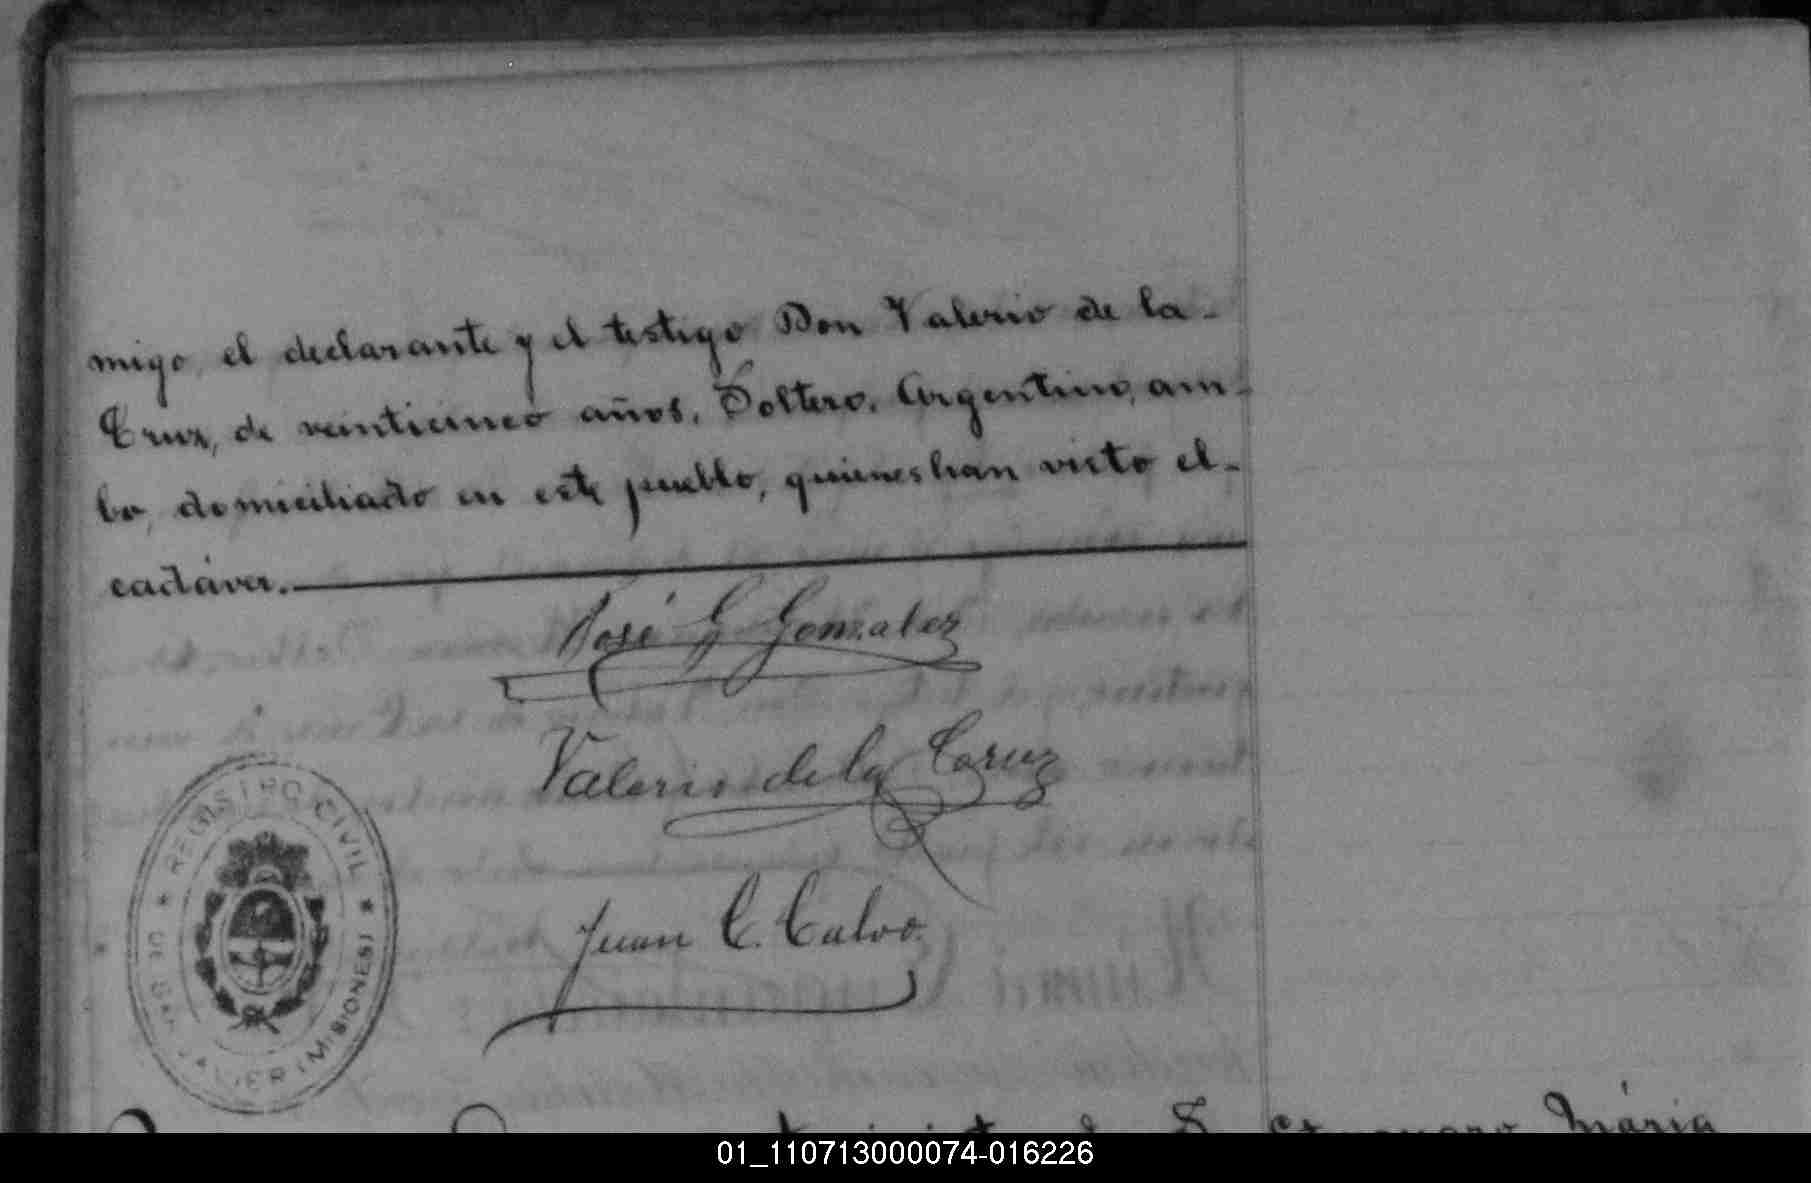 migo, el declarante y el testigo Don Valerio de la-
Cruz, de veinticinco años, Soltero, Argentino, am-
bo, domiciliado en este pueblo, quienes han visto el-
cadáver.
José G. Gonzalez
Valerio de la Cruz
Juan C. Calvo.
REGISTRO CIVIL
DE SAN JAVIER (MISIONES)
María
01_110713000074-016226